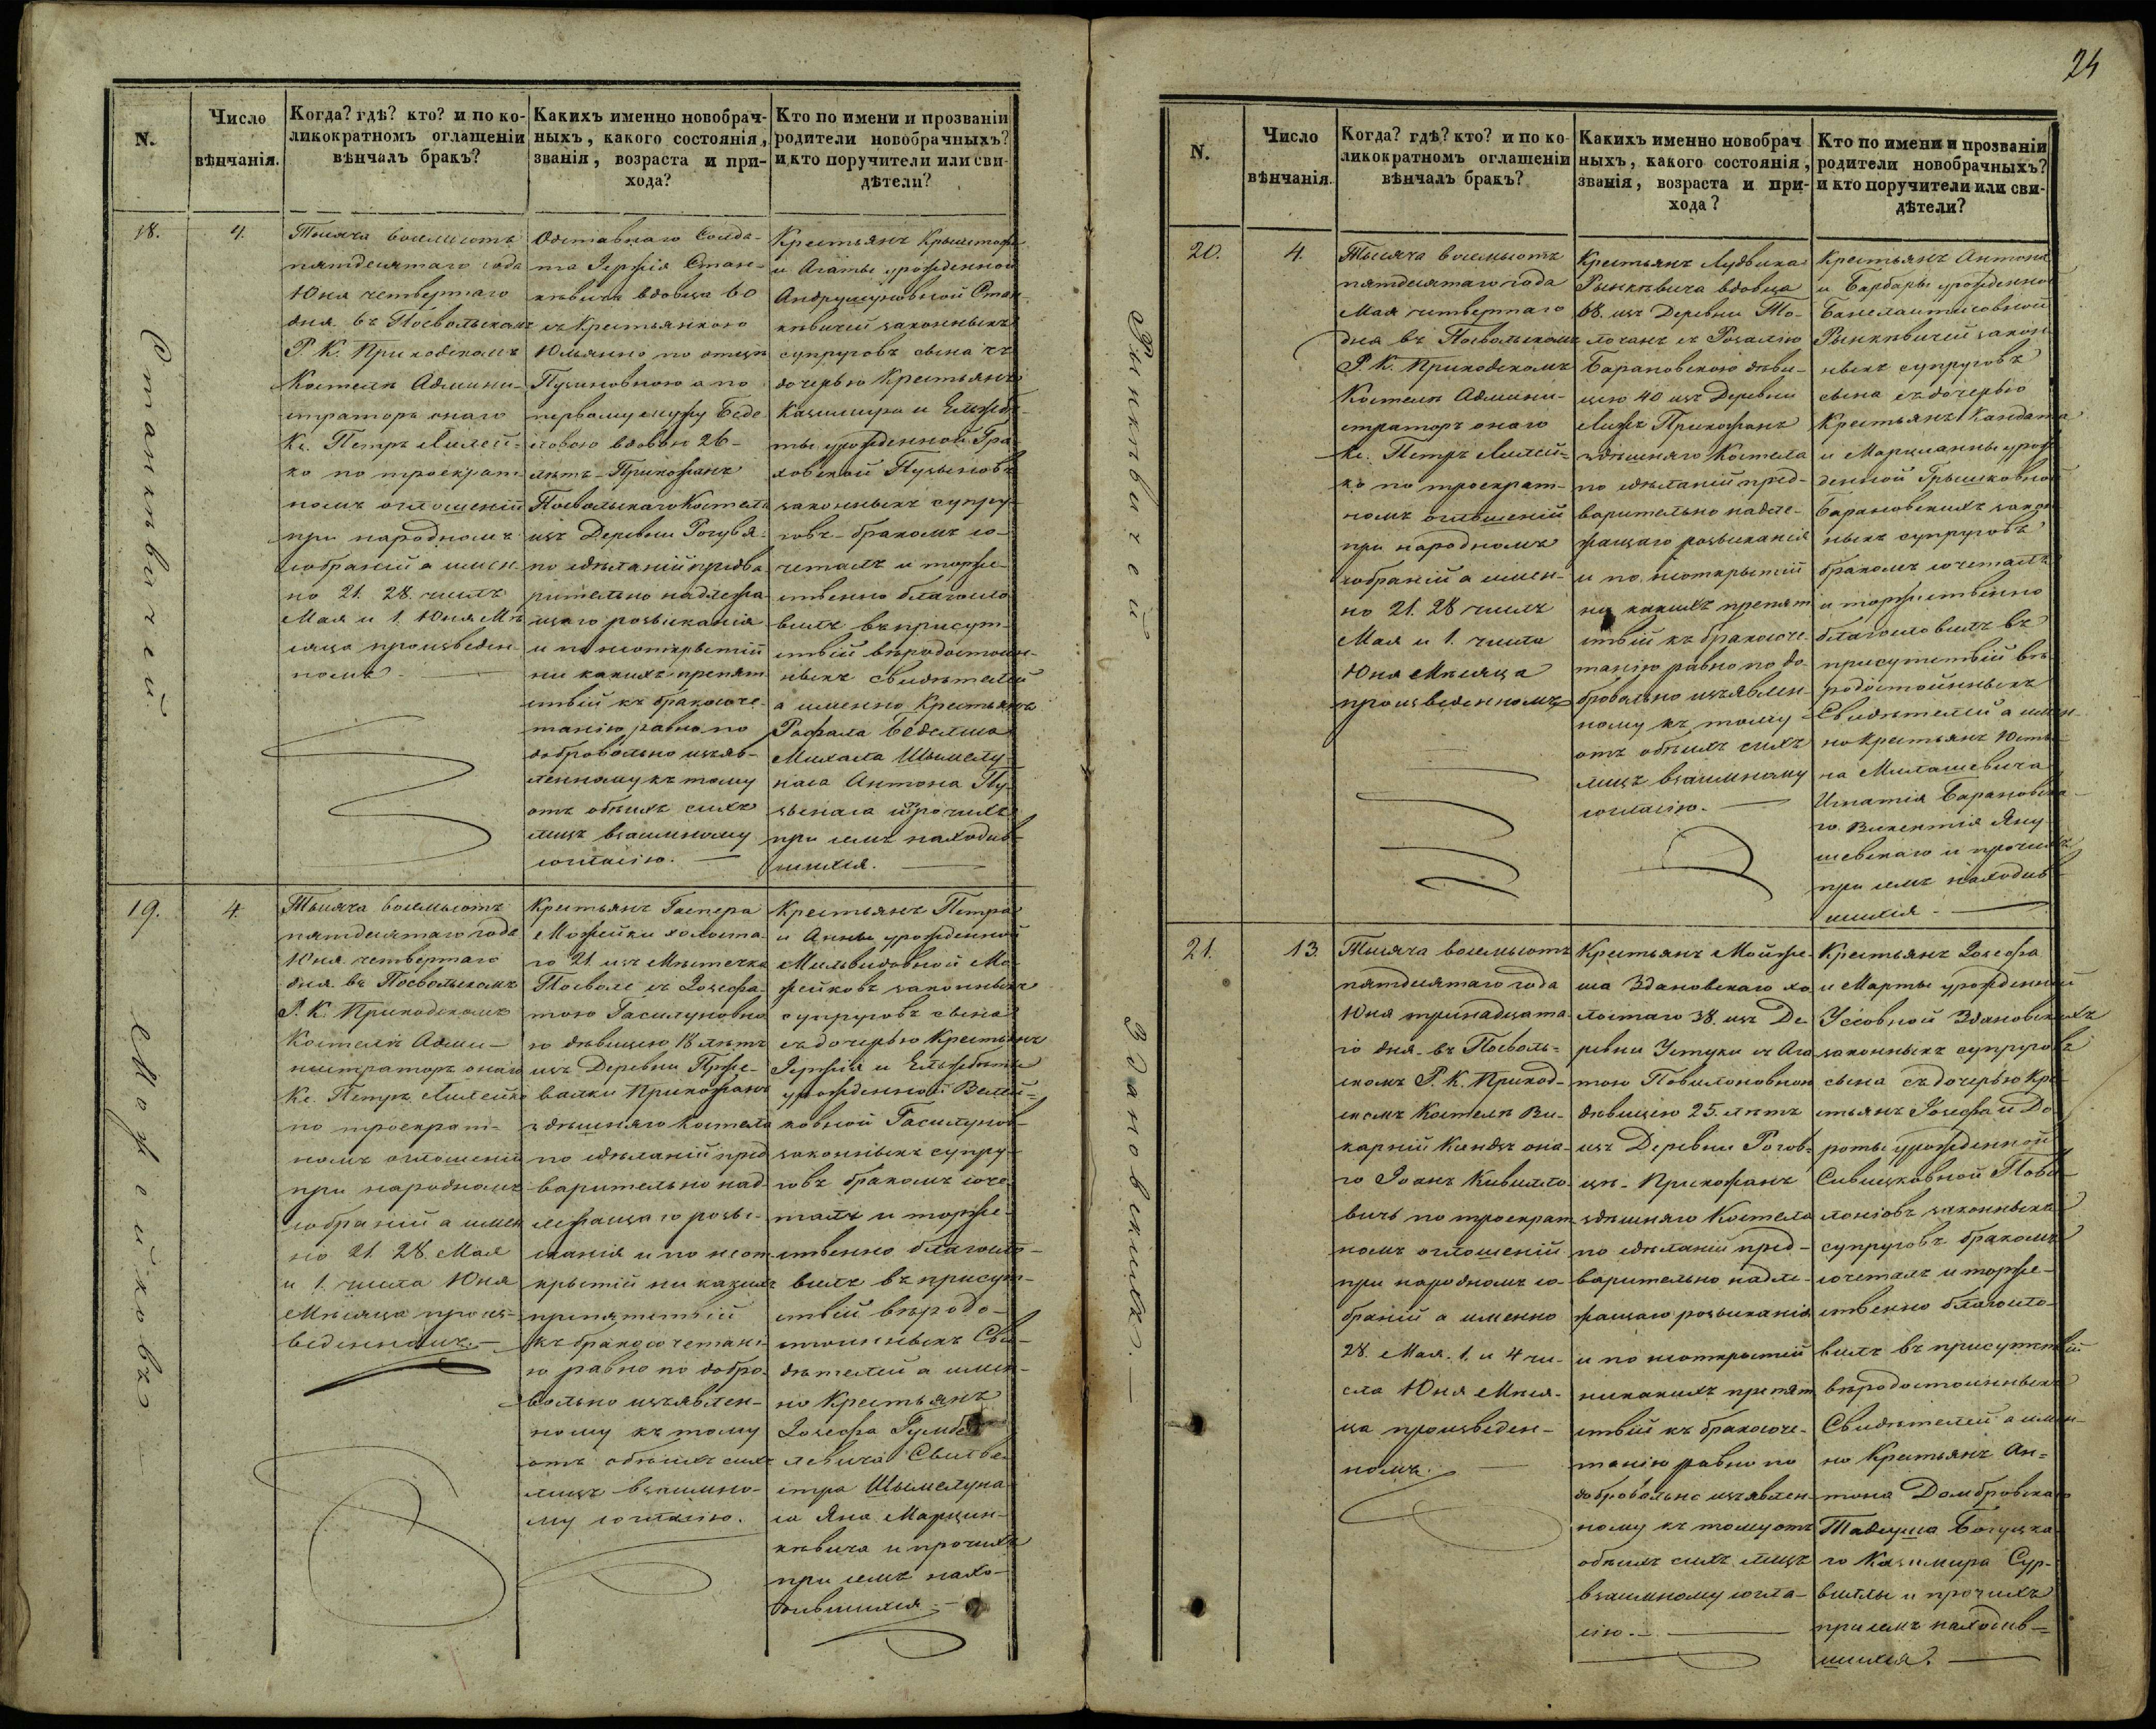 24
N.
Число
вѣнчанія.
Когда? гдѣ? кто? и по ко-
ликократномъ оглашеніи
вѣнчалъ бракъ?
Какихъ именно новобрач-
ныхъ, какого состоянія,
званія, возраста и при-
хода?
Кто по имени и прозванію
родители новобрачныхъ?
и кто поручители или сви-
дѣтели?
18.
4.
Станкѣвичей
Тысяча восемьсотъ
пятдесятаго года
Юня четвертаго
дня въ Посвольскомъ
Р. К. Приходскомъ
Костелѣ Админи-
страторъ онаго
Кс. Петръ Лилей-
ко по троекрат-
номъ оглошеній
при народномъ
собраній а имен-
но 21. 28. числъ
Мая и 1 Юня Мѣ-
сяца произведен-
номъ.
Отставнаго Солда-
та Іержія Стан-
кѣвича вдовца 60
съ Крестьянкою
Юльянно по отцѣ
Пузиновною а по
первому мужу Беде-
лѣтъ Прихожанъ
Посвольскаго Костела
изъ Деревни
по здѣланій предва
рительно надлежа-
щаго розысканія
и по неоткрытій
ни какихъ препят
ствій къ бракосоче-
танію равно по
добровольно изъяв-
ленному къ тому
отъ обѣихъ сихъ
лицъ взаимному
согласію.
Крестьянъ Крыштофа
и Агаты урожденной
Стан-
кѣвичей законныхъ
супруговъ сына съ
дочерью Крестьянъ
Казимира и Ельжбѣ-
ты урожденной Гра-
ховской Пузыновъ
законныхъ супру-
говъ бракомъ со-
четалъ и торже-
ственно благосло-
вилъ въ присут-
ствій вѣродостойн-
ныхъ свидѣтелей
а именно Крестьянъ
Рафала Беделиса
Михала Шымелу-
наса Антона Пу-
зынаса и прочихъ
при семъ находив-
шихся.
19.
4.
Можейковъ
Тысяча восемьсотъ
пятдесятаго года
Юня четвертаго
дня въ Посвольскомъ
Р. К. Приходскомъ
Костелѣ Адми-
нистраторъ онаго
Кс. Петръ Лилейко
по троекрат-
номъ оглошеній
при народномъ
собраній а имен
но 21. 28. Мая
и 1. числа Юня
Мѣсяца произ-
веденномъ.
Крестьянъ Гаспера
Можейки холоста-
го 21. изъ Мѣстечка
Посволе съ Іозефа-
тою Гасилуновно
ю дѣвицею 18 лѣтъ
изъ Деревни
Прихожанъ
здѣшняго Костела
по здѣланій пред
варительно над-
лежащаго розы-
сканія и по неот-
крытій ни какихъ
препятствій
къ бракосочетані-
ю равно по добро-
вольно изъявлен-
ному къ тому
отъ обѣихъ сихъ
лицъ взаимно-
му согласію.
Крестьянъ Петра
и Анны урожденной
Мильвидовной Мо-
жейковъ законныхъ
супруговъ сына
съ дочерью Крестьянъ
Іержія и Ельжбѣты
урожденной
Гасилунов-
законныхъ супру-
говъ бракомъ соче-
талъ и торже-
ственно благосло-
вилъ въ присут-
ствій вѣродо-
стойныхъ Сви-
дѣтелей а имен-
но Крестьянъ
Іозефа
Сильве-
стра Шымелуна-
са Яна Марцин-
кѣвича и прочихъ
при семъ нахо-
дившихся.
N.
Число
вѣнчанія.
Когда? гдѣ? кто? и по ко-
ликократномъ оглашеніи
вѣнчалъ бракъ?
Какихъ именно новобрач
ныхъ, какого состоянія,
званія, возраста и при-
хода?
Кто по имени и прозваніи
родители новобрачныхъ?
и кто поручители или сви-
дѣтели?
20.
4.
Рынкѣвичей
Тысяча восемьсотъ
пятдесятаго года
Мая четвертаго
дня въ Посвольскомъ
Р. К. Приходскомъ
Костелѣ Админи-
страторъ онаго
Кс. Петръ Лилей-
ко по троекрат-
номъ оглошеній
при народномъ
собраній а имен-
но 21. 28 числъ
Мая и 1. числа
Юня Мѣсяца
произведенномъ
Крестьянъ Лудвика
Рынкѣвича вдовца
68. изъ Деревни То-
лочанъ съ Розалію
Барановскою дѣви-
цею 40 изъ Деревни
Прихожанъ
здѣшняго Костела
по здѣланій пред-
варительно надле-
жащаго розысканія
и по неоткрытій
ни какихъ препят
ствій къ бракосоче-
танію равно по до-
бровольно изъявлен-
ному къ тому
отъ обѣихъ сихъ
лицъ взаимному
согласію.
Крестьянъ Антона
и Барбары урожденно
Рынкѣвичей закон
ныхъ супруговъ
сына съ дочерью
Крестьянъ
и Марцианны урож
денной Грышковной
Барановскихъ закон
ныхъ супруговъ
бракомъ сочеталъ
и торжественно
благословилъ въ
присутствій вѣ-
родостойнныхъ
Свидѣтелей а имен-
но Крестьянъ Юсти-
на Милашевича
Игнатія Барановска-
го Викентія Яну-
шевскаго и прочихъ
при семъ находив-
шихся.
21.
13.
Здановскихъ.
Тысяча восемьсотъ
пятдесятаго года
Юня тринадцата-
го дня въ Посволь-
скомъ Р. К. Приход-
скомъ Костелѣ Ви-
карній Ксендзъ она-
го Іоанъ
вичъ по троекрат
номъ оглошеній
при народномъ со-
браній а именно
28. Мая. 1. и 4 чи-
сла Юня Мѣся-
ца произведен-
номъ.
Крестьянъ Мойже-
ша Здановскаго хо-
лостаго 38. изъ Де-
ревни Устуки съ Ага-
тою Повилоновною
дѣвицею 25. лѣтъ
изъ Деревни
Прихожанъ
здѣшняго Костела
по здѣланій пред-
варительно надле-
жащаго розысканія
и по неоткрытій
никакихъ препят
ствій къ бракосоче-
танію равно по
добровольно изъявлен-
ному къ тому отъ
обѣихъ сихъ лицъ
взаимному согла-
сію.
Крестьянъ Іозефа
и Марты урожденной
Здановскихъ
законныхъ супруговъ
сына съ дочерью Кре-
стьянъ Іозефа и До-
роты урожденной
Пови-
лонювъ законныхъ
супруговъ бракомъ
сочеталъ и торже-
ственно благосло-
вилъ въ присутствій
вѣродостойнныхъ
Свидѣтелей а имен-
но Крестьянъ Ан-
тона Домбровскаго
Тадеуша Богуцка-
го Казимира Сур-
виллы и прочихъ
при семъ находив-
шихся.